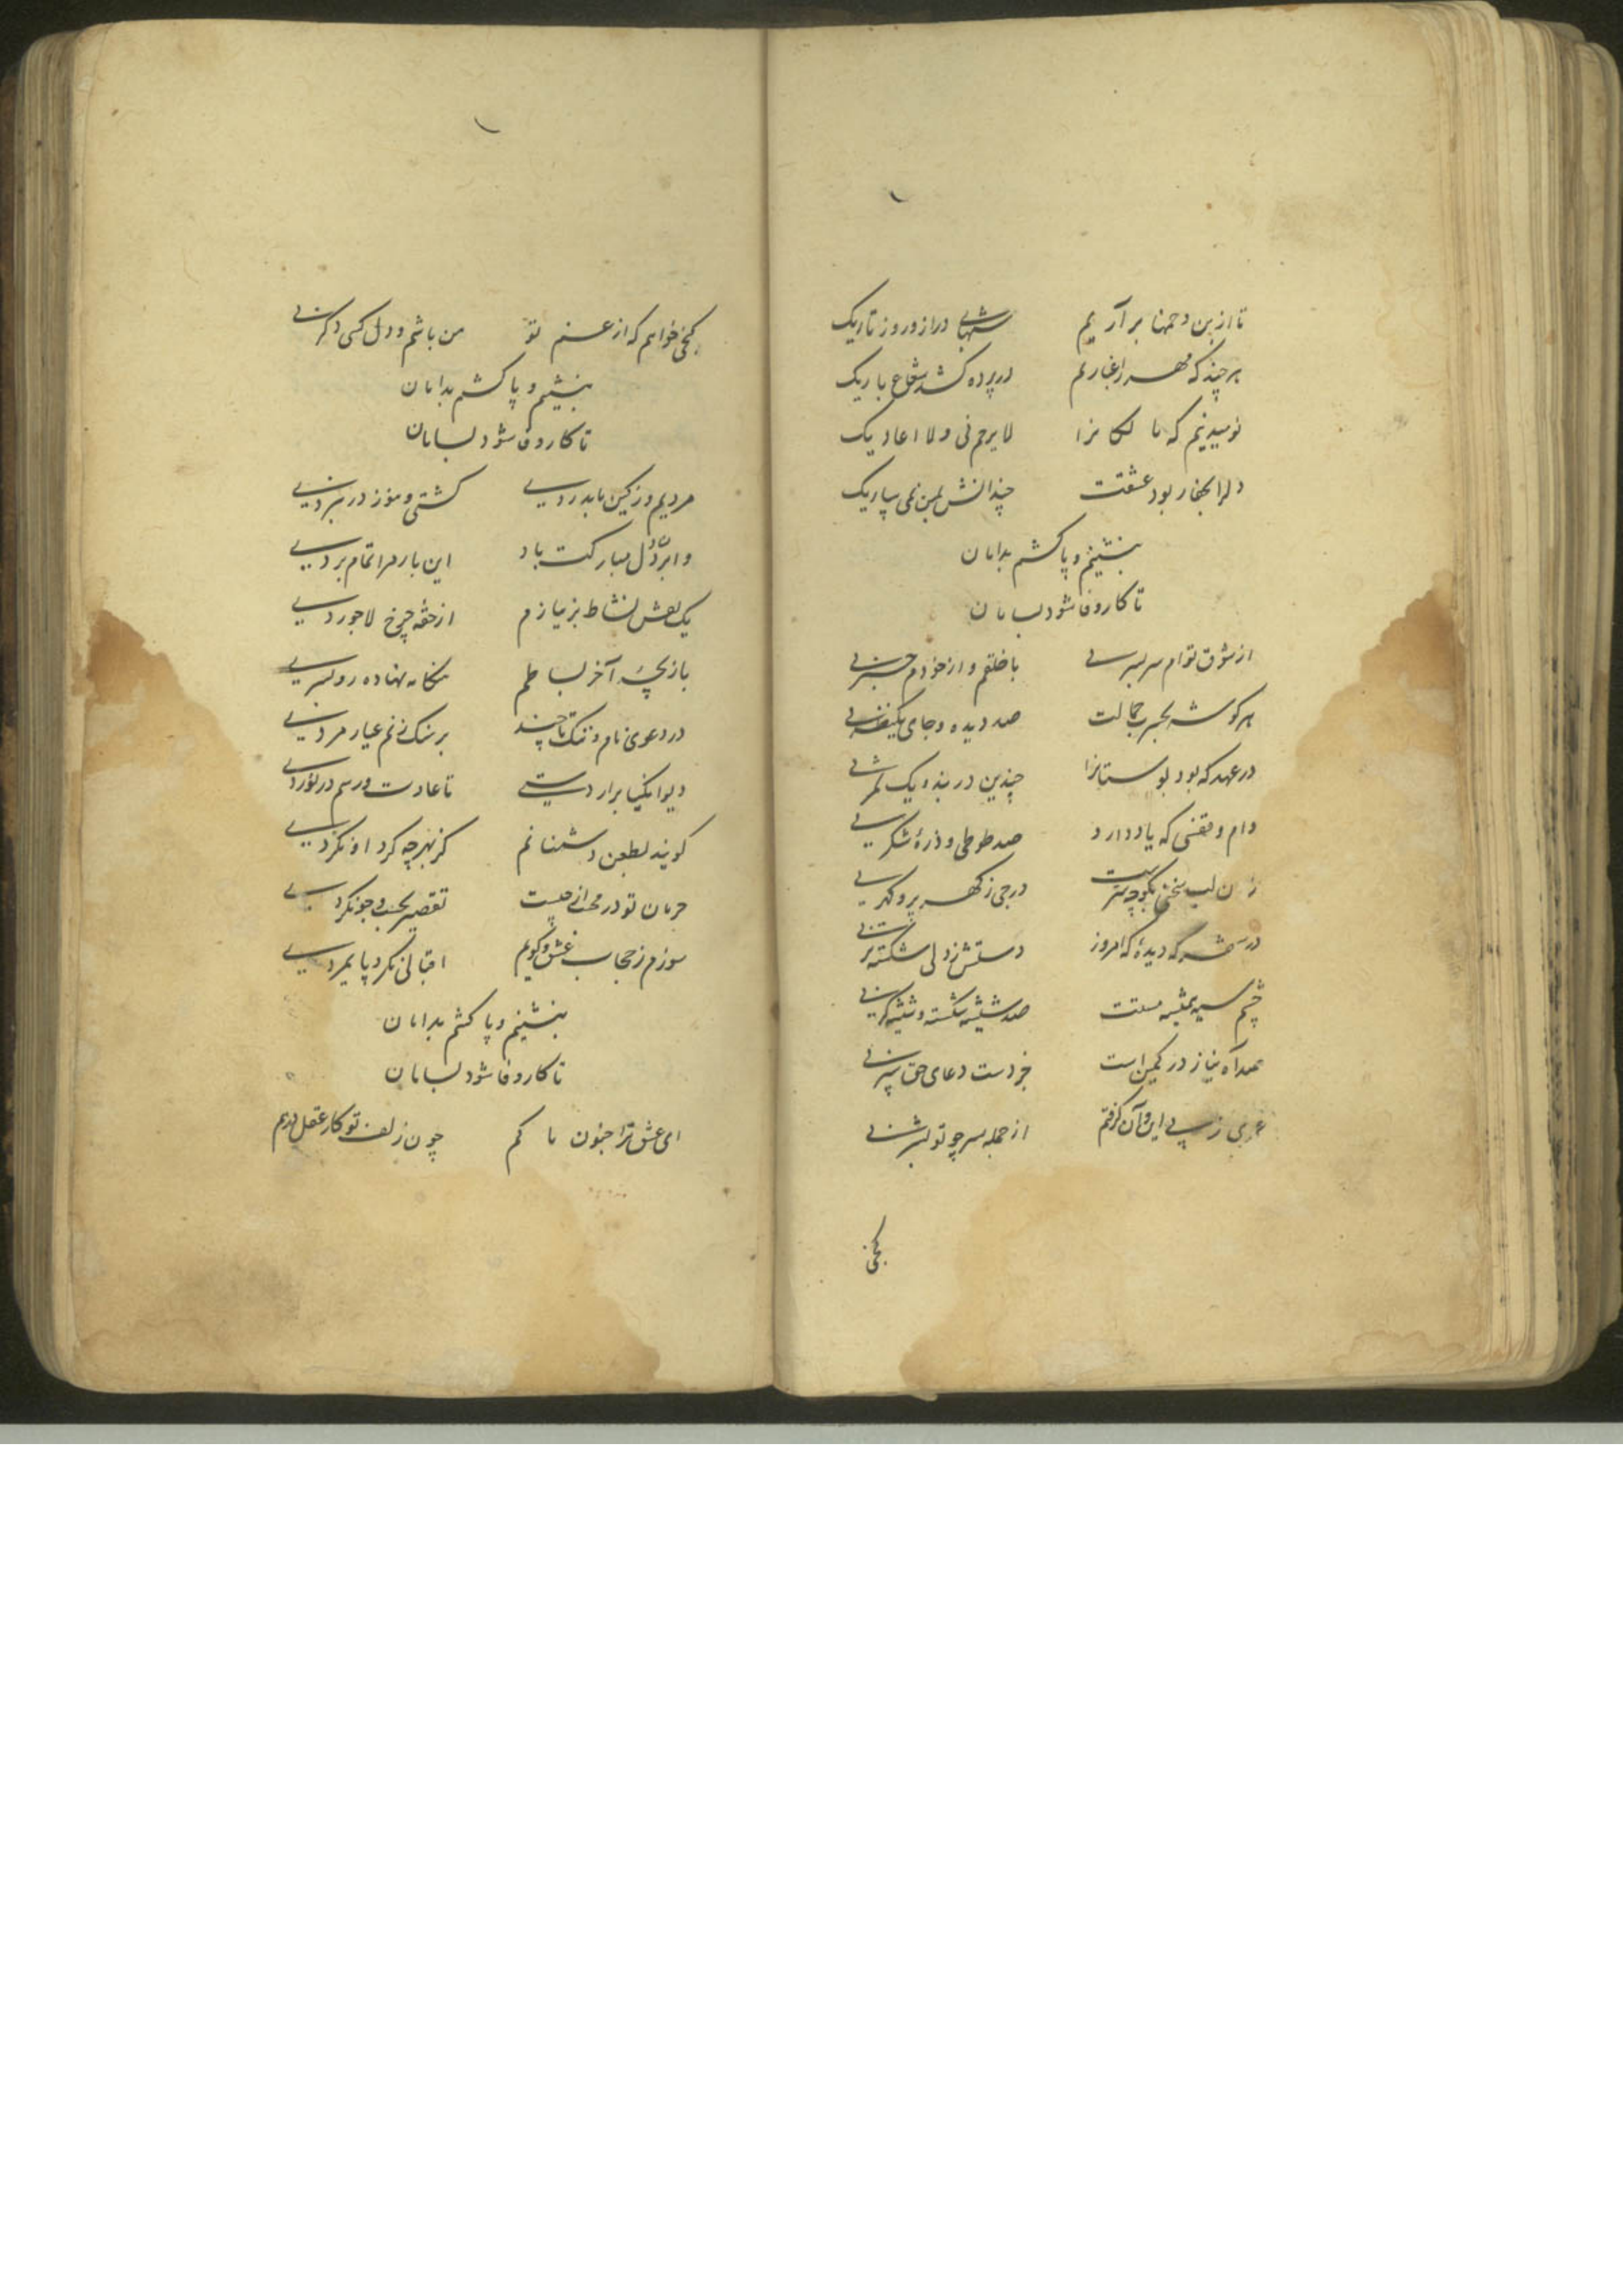 تا ازین دخمها بر آریم شبهای دراز و روز تاریک
هر چند که مهر را غباریم در پرده کشد شعاع باریک
نومید نیم که مالکانرا لا یرحم فی ولا اعادیک
دلرا بکنار بود عشقت چندانش بمن نمی سپاریک
بنشینم و پا کشم بدامان
تا کار وفا شود بسامان
از شوق توام سر بسری با خلقم و از خودم خبری
هر گوشه بحرب جمالت صد دیده و جای یکنظری
در عهد که بود بوستانرا چندین در بند و یک ثمری
دام و قفسی که یاد دارد صد طوطی و ذرهٔ شکری
زان لب سخنی بگو چه سرست درجی ز گهر پر و گهری
در که دیدهٔ که امروز دستش ز دلی شکسته تری
چشم سیه مستت صد شیشه شکسته و شیشه گری
صد آه نیاز در کمین است جز دست دعای حق سپری
عمری ز پی این و آن گرفتم از جمله سر چو تو بسری
کنجی
کنجی خواهم که از غم تو من باشم و دل کسی دگر نی
بنشینم و پا کشم بدامان
تا کار وفا شود بسامان
مردیم و ز کین ما بدردی کشتی و هنوز در نبردی
و ابر دل مبارکت باد این بار مرا تمام بردی
یک نقش نشاط بر نیازم از حقه چرخ لاجوردی
بازیچهٔ آخر بساطم نهاده رو
در دعوی نام و ننگ تا چند بر سنگ زنم عیار مردی
دیوانگیا برار دستی تا عادت و رسم در نوردی
گویند بطعن دشمنانم کز بهر چه کرد او نکردی
حرمان تو در محبت از چیست تقصیر بجست و جو نکردی
سوزم ز حجاب عشق و گویم اقبالی نکرد پایمردی
بنشینم و پا کشم بدامان
تا کار وفا شود بسامان
ای عشق ترا جنون ما کم چون زلف تو کار عقل درهم